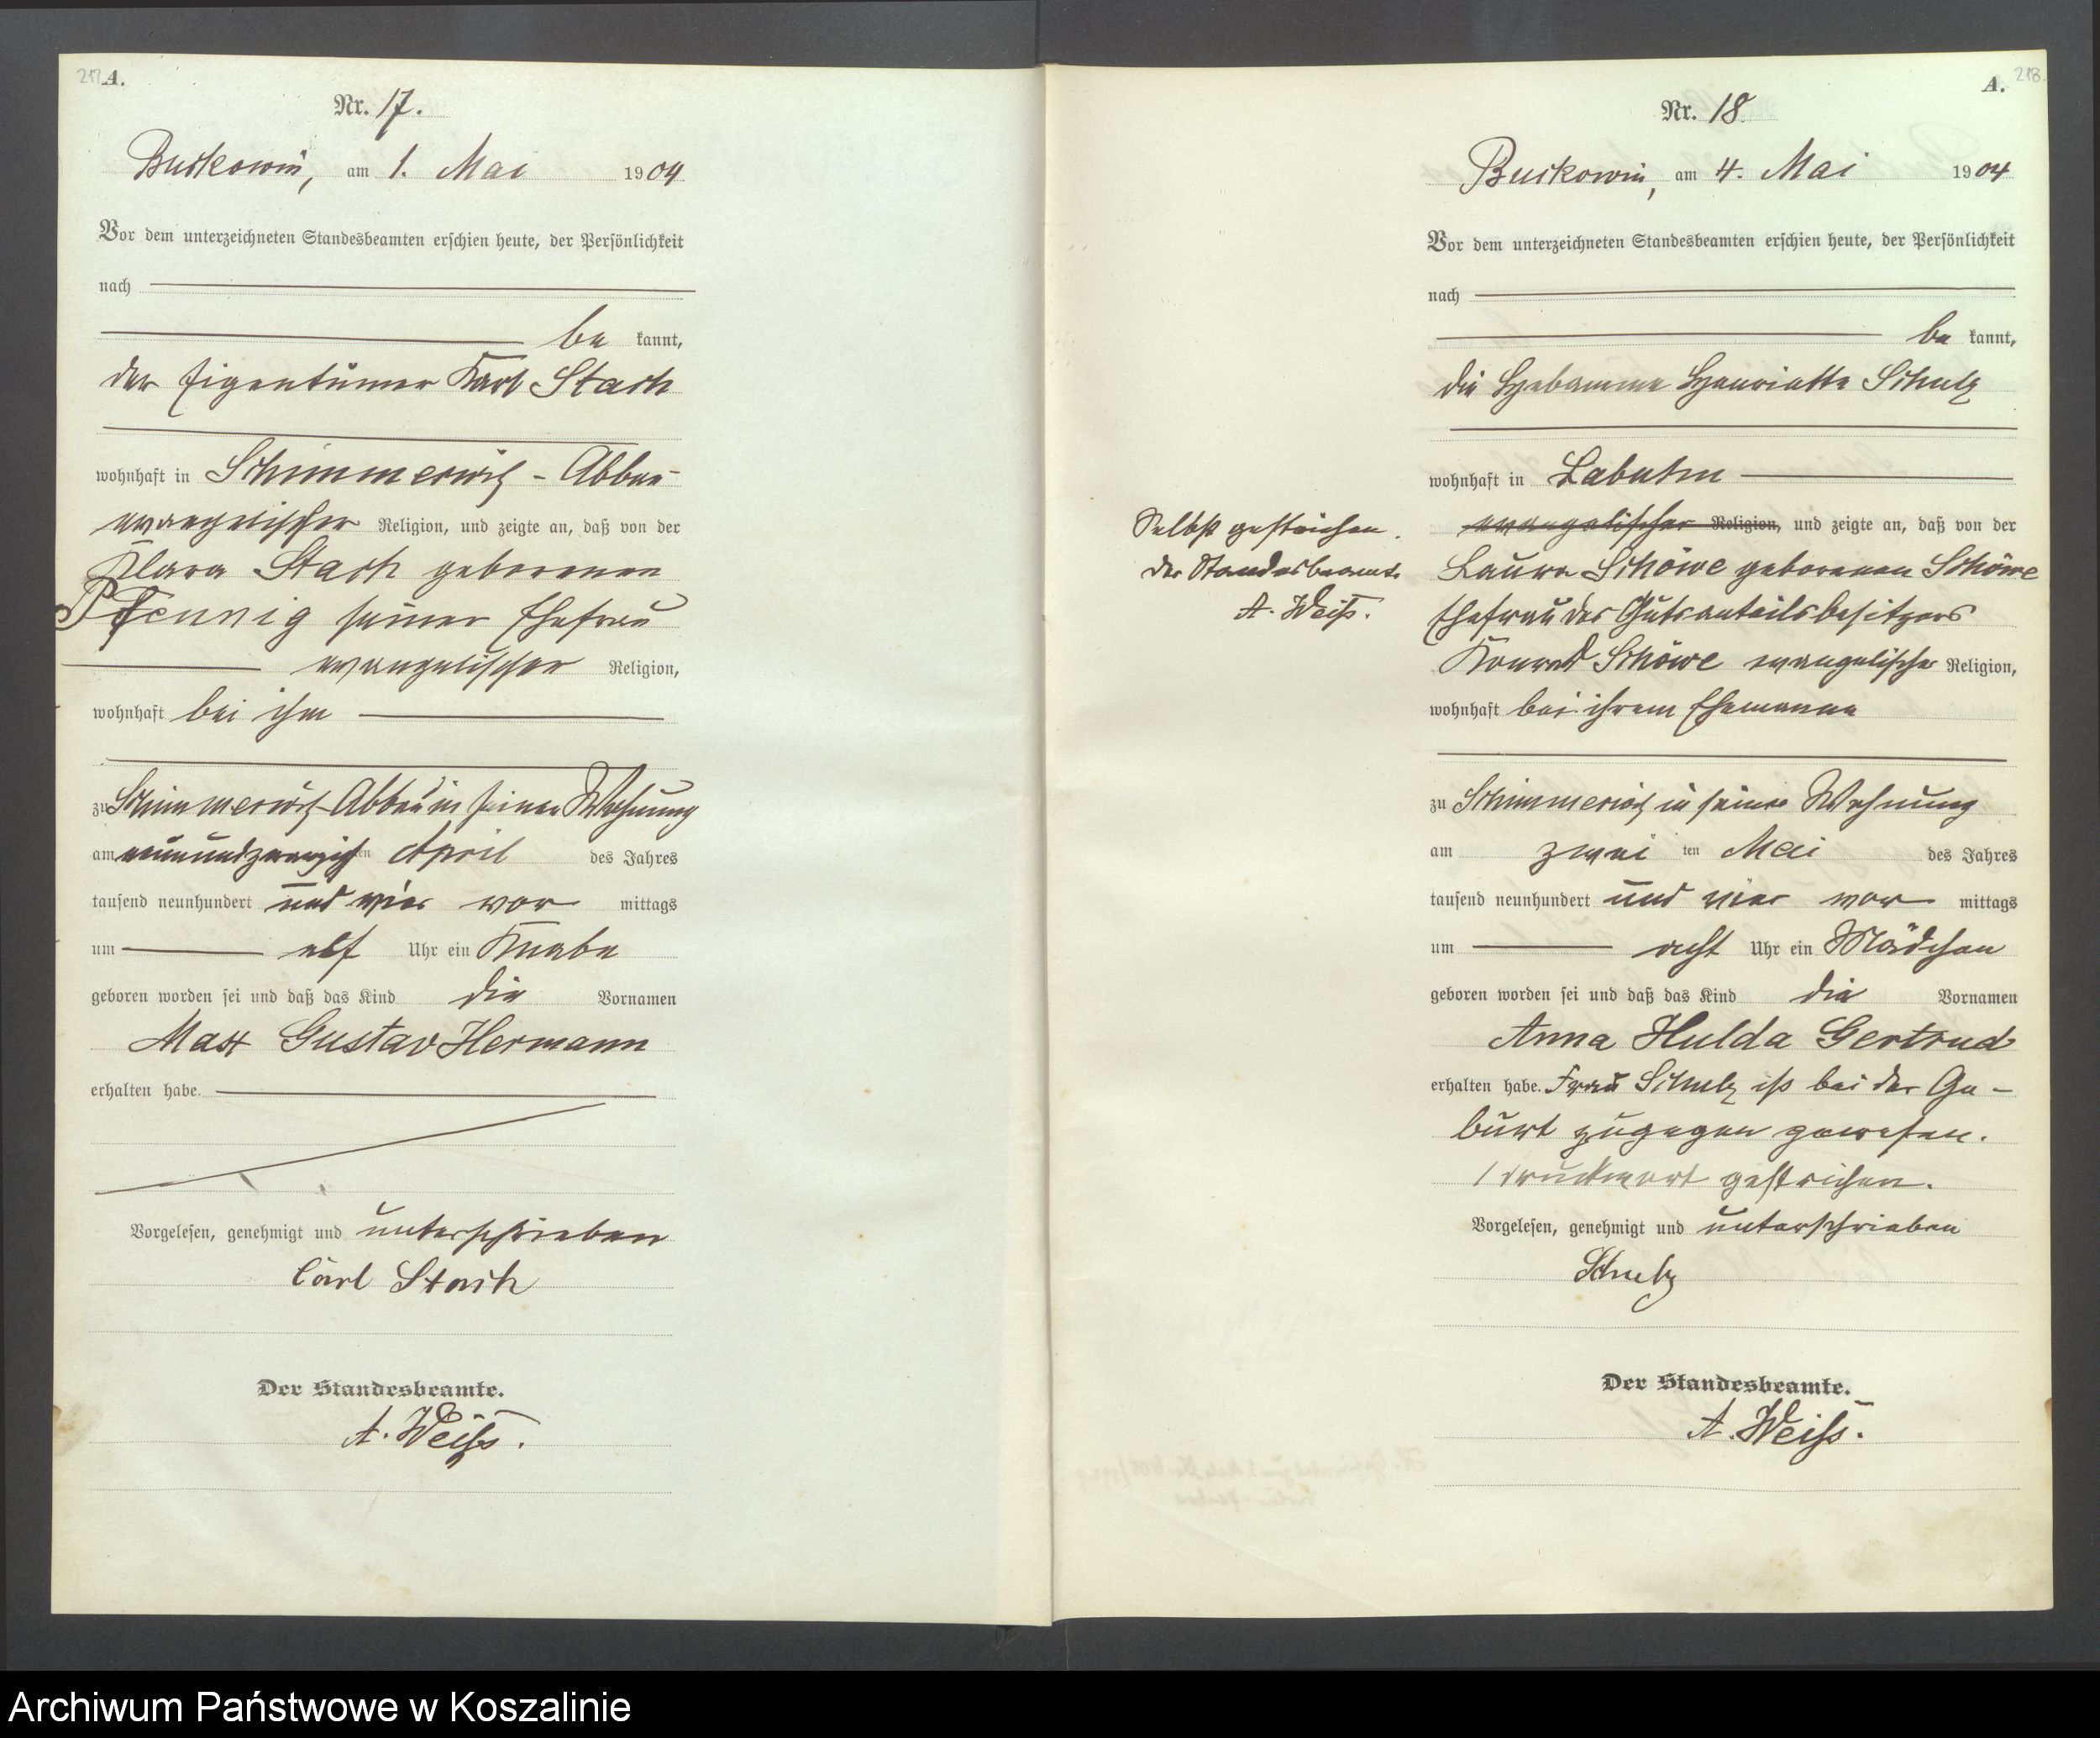 217 A.
Nr. 17.
Buckowin, am 1. Mai 1904
Vor dem unterzeichneten Standesbeamten erschien heute, der Persönlichkeit
nach
be kannt,
der Eigentümer Karl Stach
wohnhaft in Schimmerwitz - Abbau
evangelischer Religion, und zeigte an, daß von der
Klara Stach geborenen
Pfennig seiner Ehefrau
evangelischer Religion,
wohnhaft bei ihm
zu Schimmerwitz-Abbau in seiner Wohnung
am neunundzwanzigsten April des Jahres
tausend neunhundert und vier vor mittags
um elf Uhr ein Knabe
geboren worden sei und daß das Kind die Vornamen
Max Gustav Hermann
erhalten habe.
Vorgelesen, genehmigt und unterschrieben
Carl Stach
Der Standesbeamte.
A. Weiß.
A. 218.
Nr. 18.
Buckowin, am 4. Mai 1904
Vor dem unterzeichneten Standesbeamten erschien heute, der Persönlichkeit
nach
be kannt,
die Hebamme Henriette Schulz
wohnhaft in Labuhn
evangelischer Religion, und zeigte an, daß von der
Laura Schöwe geborenen Schöwe
Ehefrau des Gutsanteilsbesitzers
Konrad Schöwe evangelischer Religion,
wohnhaft bei ihrem Ehemanne
zu Schimmerwitz in seiner Wohnung
am zwei ten Mai des Jahres
tausend neunhundert und vier vor mittags
um acht Uhr ein Mädchen
geboren worden sei und daß das Kind die Vornamen
Anna Hulda Gertrud
erhalten habe. Frau Schulz ist bei der Ge-
burt zugegen gewesen.
1 Druckwort gestrichen.
Vorgelesen, genehmigt und unterschrieben
Schulz
Der Standesbeamte.
A. Weiß.
Selbst gestrichen.
Der Standesbeamte
A. Weiß.
Archiwum Państwowe w Koszalinie